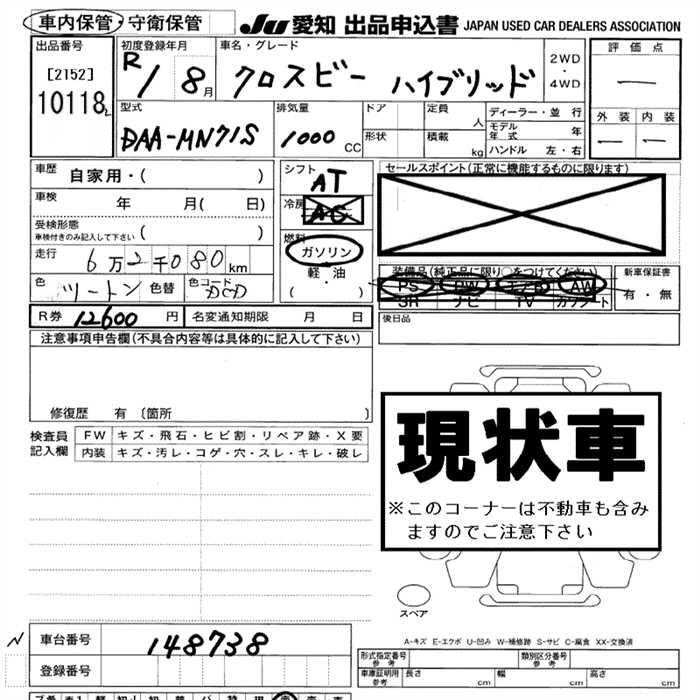 車内保管・守衛保管 JU 愛知 出品申込書 JAPAN USED CAR DEALERS ASSOCIATION
出品番号 初度登録年月 車名・グレード 2WD・4WD 評価点
[2152] R1 8月 クロスビー ハイブリッド —
10118
型式 排気量 ドア 定員 人 ディーラー・並行 外装 内装
DAA-MN71S 1000 CC 形状 積載 kg モデル年式 年 — —
ハンドル 左・右
車歴 自家用・( ) シフト AT セールスポイント(正常に機能するものに限ります)
車検 年 月( 日) 冷房 AC
受検形態 ( )
車検付きのみ記入して下さい
燃料 ガソリン・軽油・( )
走行 6万2千080km
色 ツートン 色替 色コード DCD
装備品(純正品に限り○をつけてください) 新車保証書
PS PW エアB AW 有・無
SR ナビ TV カワシート
R券 12600 円 名変通知期限 月 日 後日品
注意事項申告欄(不具合内容等は具体的に記入して下さい)
修復歴 有 〔箇所 〕
検査員記入欄 FW キズ・飛石・ヒビ割・リペア跡・X要
内装 キズ・汚レ・コゲ・穴・スレ・キレ・破レ
現状車
※このコーナーは不動車も含み
ますのでご注意下さい
スペア
A-キズ E-エクボ U-凹み W-補修跡 S-サビ C-腐食 XX-交換済
N 車台番号 148738
登録番号
形式指定番号 参考 類別区分番号 参考
車庫証明用 参考 長さ cm 幅 cm 高さ cm